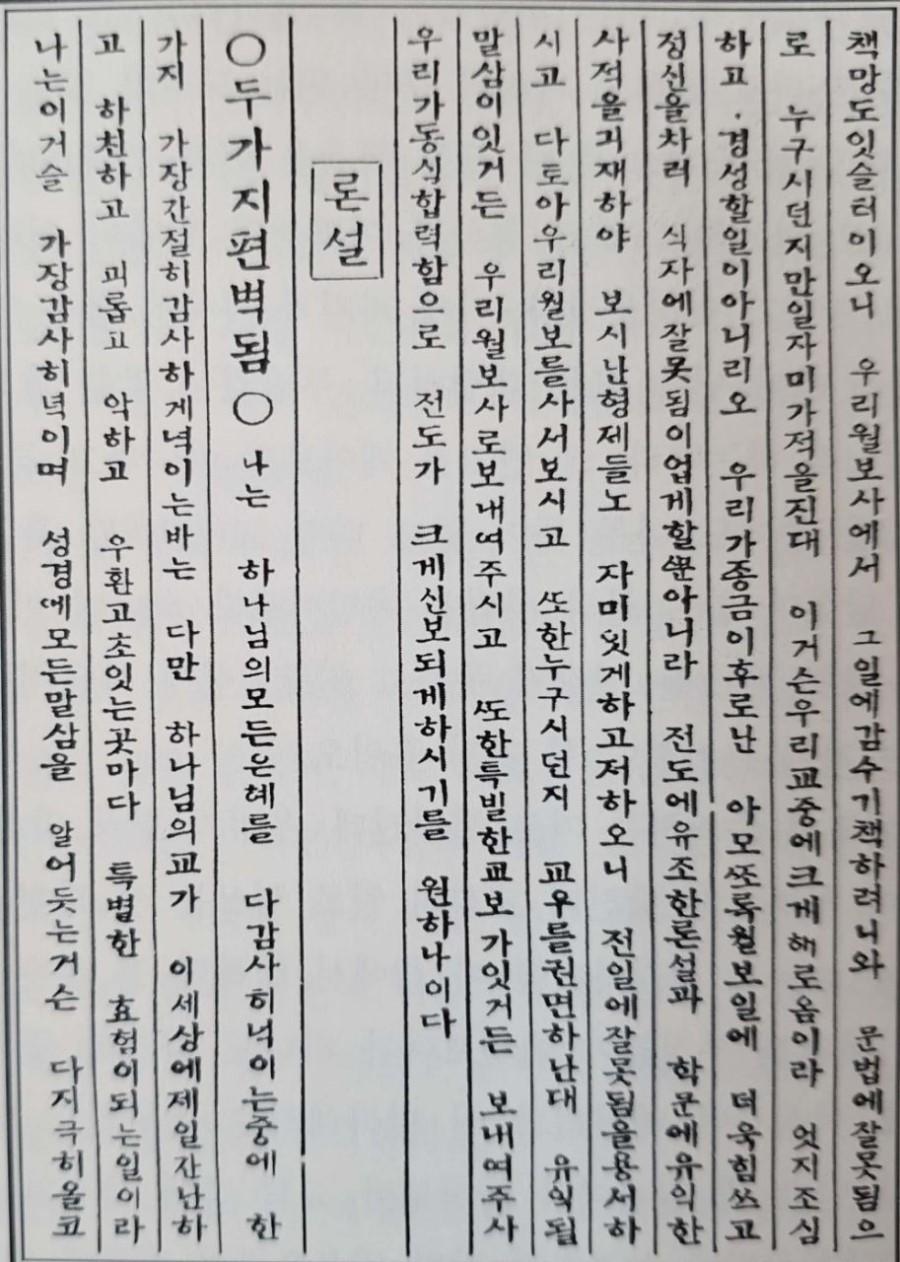 책망도잇슬터이오니 우리월보사에서 그일에감수기책하려니와 문법에잘못됨으
로 누구시던지만일자미가적을진대 이거슨우리교중에크게해로옴이라 엇지조심
하고·경성할일이아니리오 우리가종금이후로난 아모ᄶᅩ록월보일에 더욱힘쓰고
정신을차려 식자에잘못됨이업게할ᄲᅮᆫ아니라 전도에유조한론설과 학문에유익한
사적을긔재하야 보시난형제들노 자미잇게하고저하오니 전일에잘못됨을용서하
시고 다토아우리월보를사서보시고 ᄯᅩ한누구시던지 교우를권면하난대 유익될
말삼이잇거든 우리월보사로보내여주시고 ᄯᅩ한특빌한교보가잇거든 보내여주사
우리가동심합력함으로 전도가 크게신보되게하시기를 원하나이다
론설
○두가지편벽됨○ 나는 하나님의모든은혜를 다감사히녁이는중에 한
가지 가장간절히감사하게녁이는바는 다만 하나님의교가 이세상에제일잔난하
고 하천하고 괴롭고 악하고 우환고초잇는곳마다 특별한 효험이되는일이라
나는이거슬 가장감사히녁이며 성경에모든말삼을 알어듯는거슨 다지극히올코